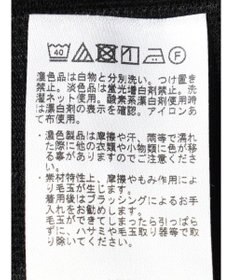 40 F
濃色品は白物と分別洗い。つけ置き
禁止。淡色品は蛍光増白剤禁止。洗
濯ネット使用。酸素系漂白剤使用時
は漂白剤の表示を確認。アイロンあ
て布使用。
・濃色製品は摩擦や汗、雨等で濡れ
た際に他の衣類や小物類に色が移
る事がありますのでご注意くださ
い。
・素材特性上、摩擦やもみ作用によ
り毛玉が生じます。
着用後はブラッシングによるお手
入れをお勧めします。
毛玉ができてしまったら引っぱら
ずに、ハサミや毛玉取り器等で取
り除いてください。